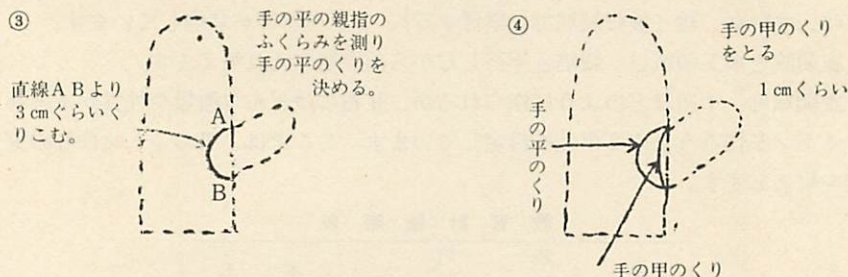 ③
手の平の親指の
ふくらみを測り
手の平のくりを
決める。
直線ABより
3㎝ぐらいく
りこむ。
A
B
④
手の甲のくり
をとる
1㎝くらい
手の平のくり
手の甲のくり